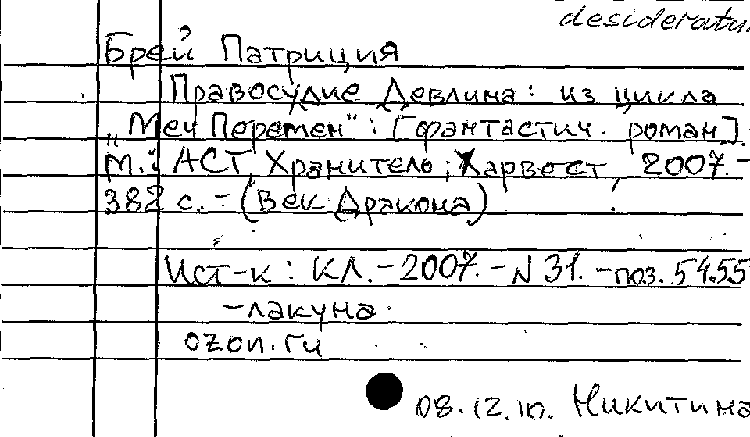 desideratu
Брей Патриция
Правосудие Девлина: из цикла
„Меч Перемен": [фантастич. роман].
М.: АСТ, Хранитель; Харвест, 2007.-
382 с. - (Век Дракона)
Ист-к: КЛ.-2007.-N31.-поз.5455
-лакуна.
ozon.ru
08.12.10. Никитина